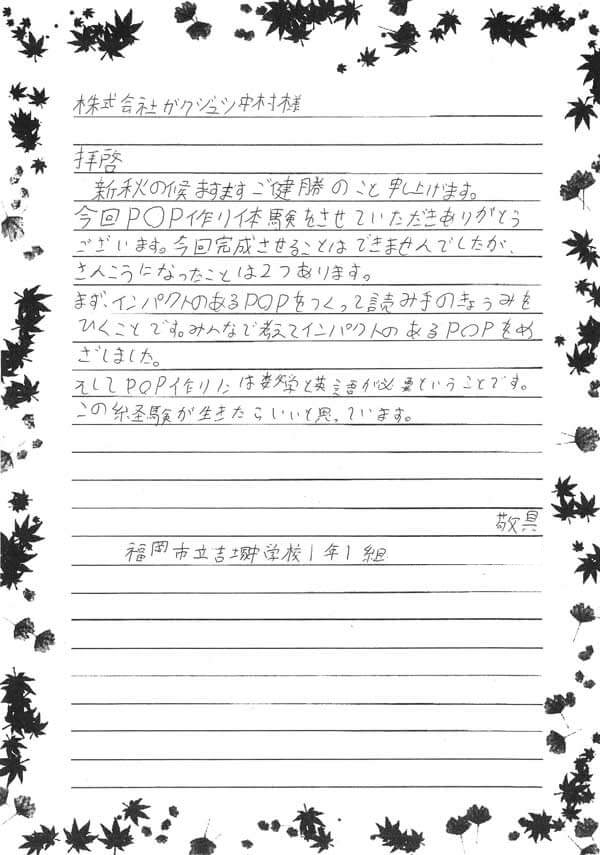 株式会社ガクジュツ中村様
拝啓
新秋の候ますますご健勝のこと申し上げます。
今回POP作り体験をさせていただきありがとう
ございます。今回完成させることはできませんでしたが、
さんこうになったことは2つあります。
まず、インパクトのあるPOPをつくって読み手のきょうみを
ひくことです。みんなで考えてインパクトのあるPOPをめ
ざしました。
そしてPOP作りには数学と英語が必要ということです。
この経験が生きたらいいと思っています。
敬具
福岡市立吉塚中学校1年1組